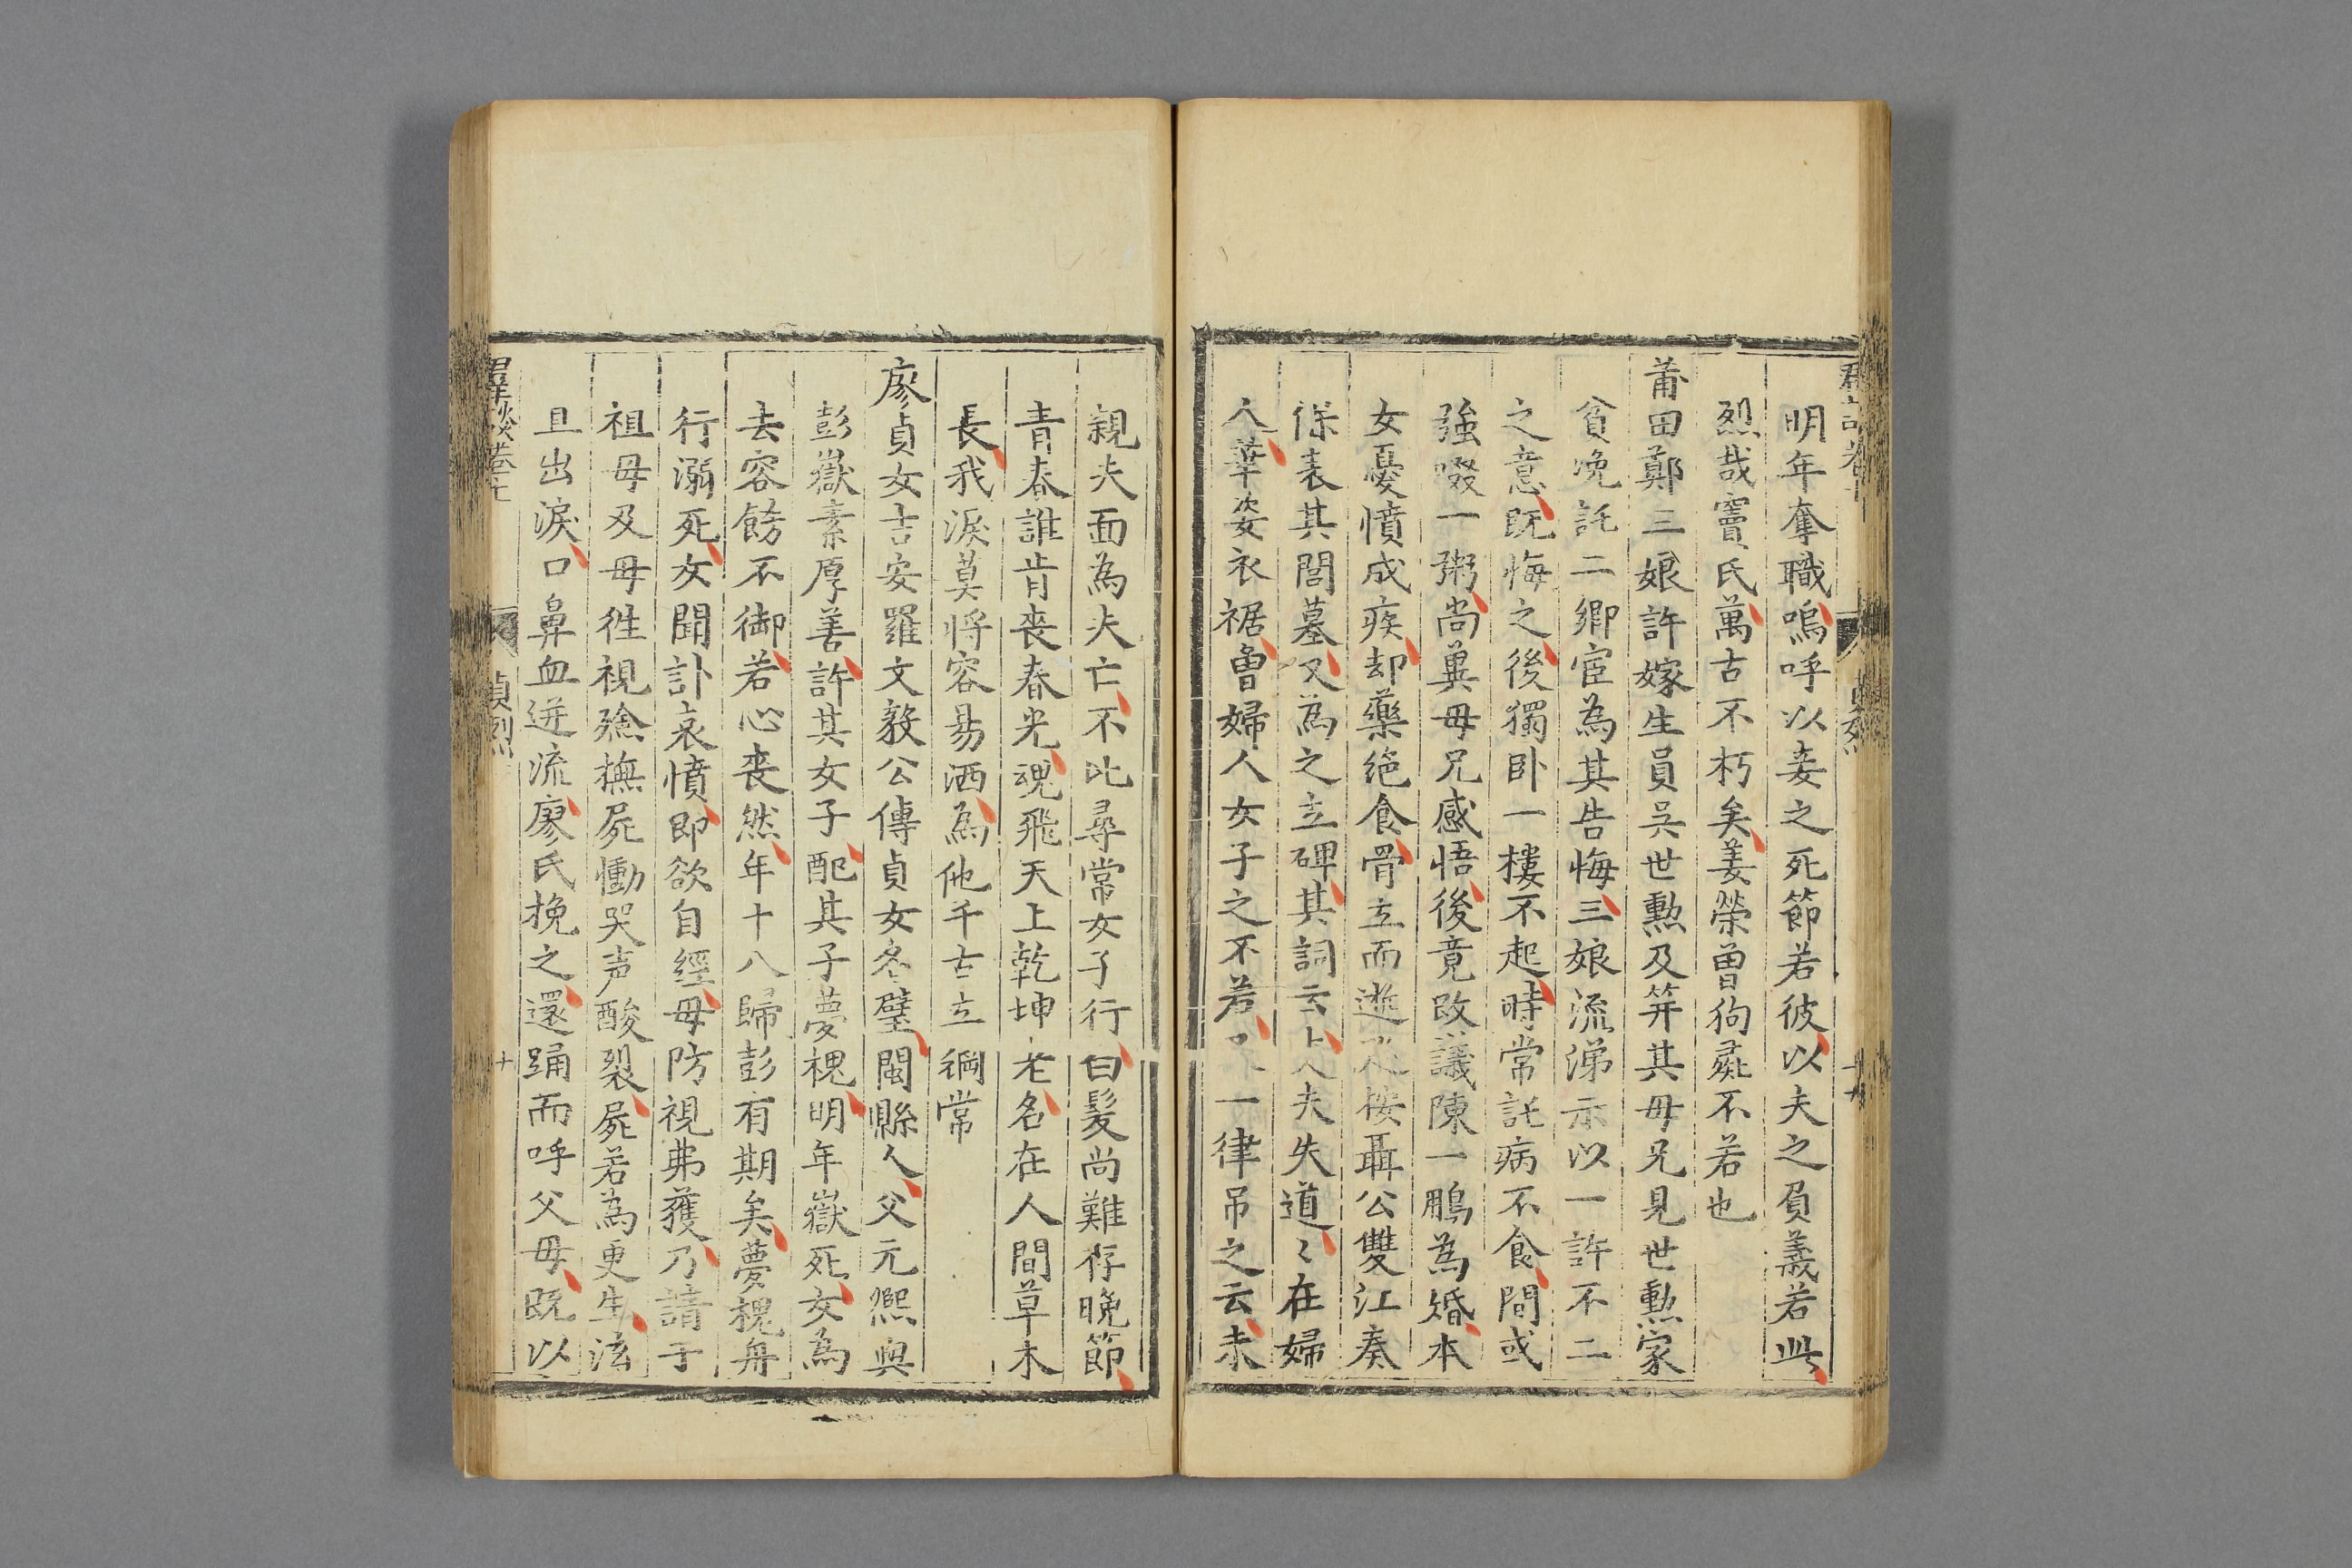 明年奪職嗚呼以妾之死節若彼以夫之負義若此
烈哉竇氏萬古不朽矣姜榮曾狗彘不若也
莆田鄭三娘許嫁生員吳世勲及笄其母兄見世勲家
貧晚託二鄉宦為其告悔三娘流涕示以一許不二
之意既悔之後獨卧一樓不起時常託病不食間或
強啜一粥尚兾母兄感悟後竟改議陳一鵬為婚本
女憂憤成疾却藥絶食骨立而逝廵按聶公雙江奏
保表其閭墓又為之立碑其詞云上人夫失道〻在婦
人華姿衣裾曾婦人女子之不若一律吊之云未
親夫面為夫亡不比尋常女子行白髮尚難存晚節
青春誰肯喪春光魂飛天上乾坤老名在人間草木
長我淚莫将容易洒為他千古立綱常
廖貞女吉安羅文毅公傳貞女冬璧閩縣人父元熈與
彭嶽素厚善許其女子配其子夢槐明年嶽死女為
去容飾不御若心喪然年十八歸彭有期矣夢槐舟
行溺死女聞訃哀憤即欲自經母防視弗獲乃請于
祖母及母徃視殮撫屍慟哭声酸裂屍若為更生泫
且出淚口鼻血迸流廖氏挽之還踊而呼父母既以
羣談卷十
貞烈
十